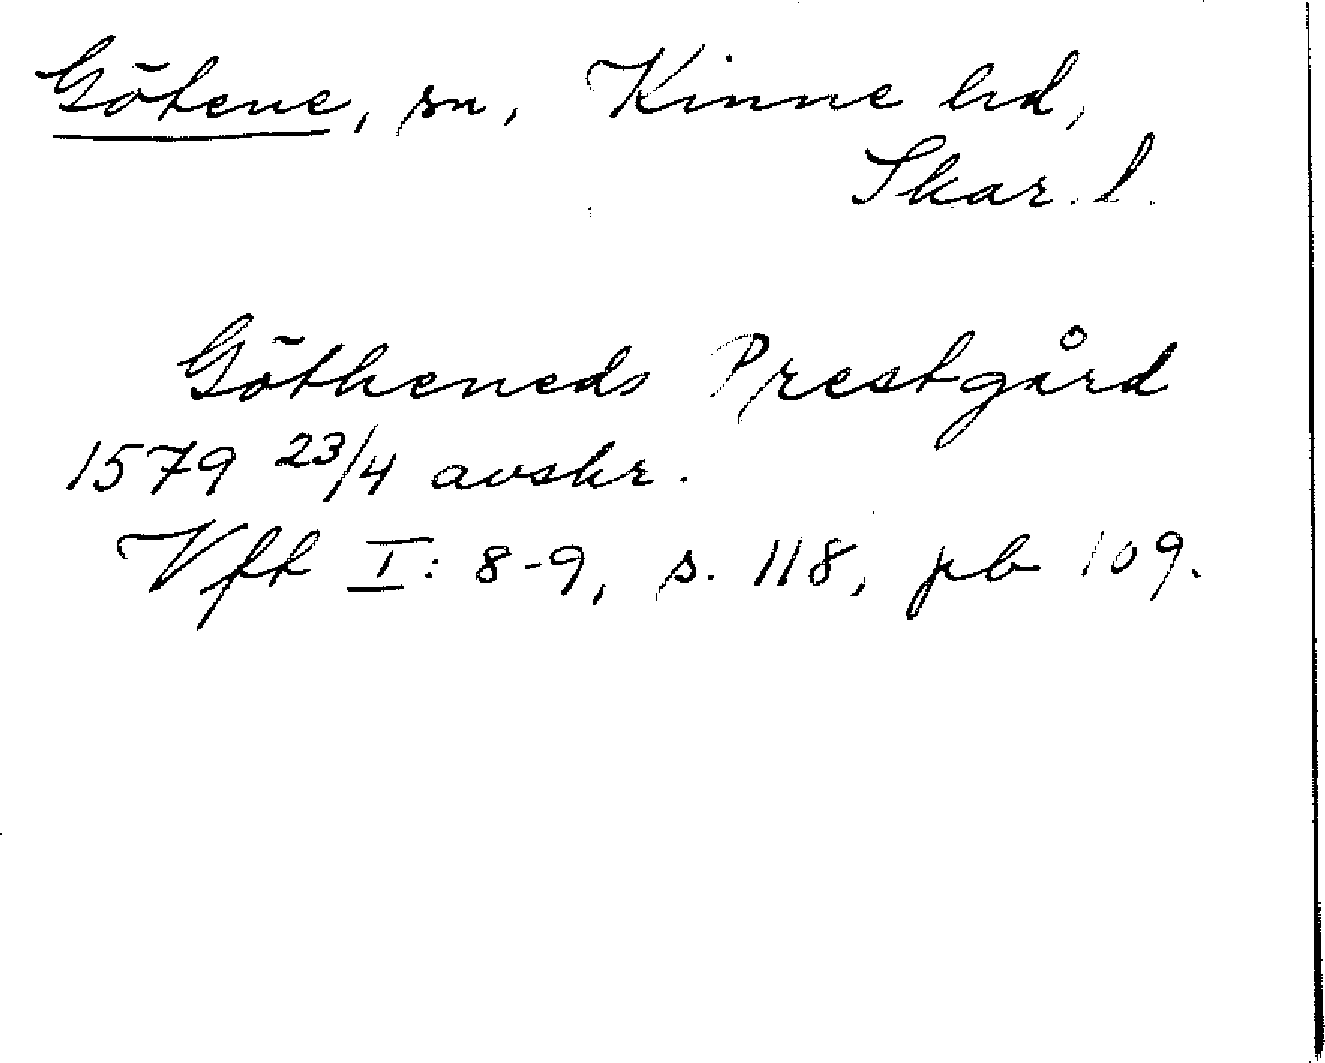 Götene, sn, Kinne hd,
Skar. l.
Götheneds Prestgård
1579 23/4 avskr.
Vft I: 8-9, s. 118, pb 109.